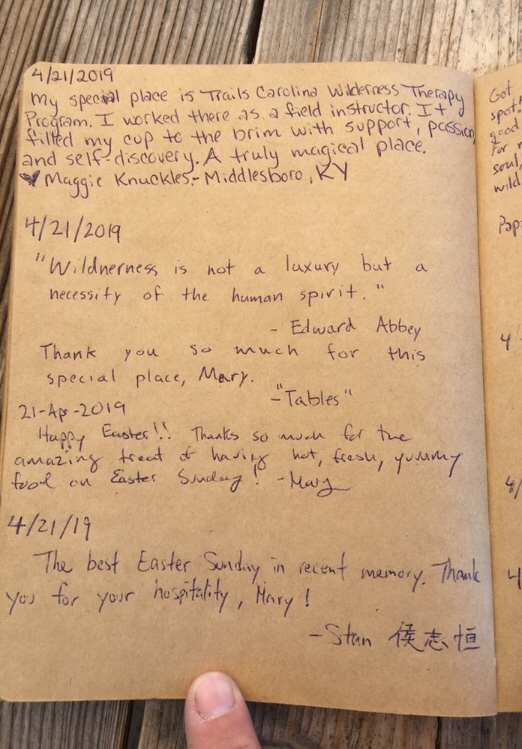 4/21/2019
My special place is Trails Carolina Wilderness Therapy
Program. I worked there as a field instructor. It
filled my cup to the brim with support, passion,
and self-discovery. A truly magical place.
♥ Maggie Knuckles - Middlesboro, KY
4/21/2019
"Wildnerness is not a luxury but a
necessity of the human spirit."
- Edward Abbey
Thank you so much for this
special place, Mary.
- "Tables"
21-Apr-2019
Happy Easter!! Thanks so much for the
amazing treat of having hot, fresh, yummy
food on Easter Sunday! - Mary
4/21/19
The best Easter Sunday in recent memory. Thank
you for your hospitality, Mary!
- Stan 侯志恒
Got
spot
good
for m
soul
wild
Pap
4
4/
4